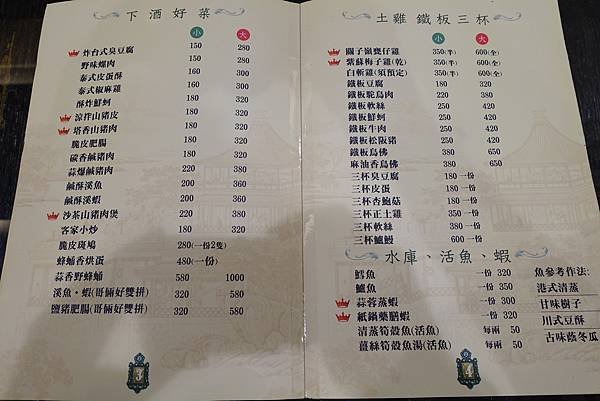 下酒好菜
小 大
炸台式臭豆腐 150 280
野味螺肉 150 280
泰式皮蛋酥 160 300
泰式椒麻雞 160 300
酥炸鮮蚵 180 320
涼拌山豬皮 180 320
塔香山豬肉 180 320
脆皮肥腸 180 320
碳香鹹豬肉 180 320
蒜爆鹹豬肉 220 380
鹹酥溪魚 200 360
鹹酥溪蝦 200 360
沙茶山豬肉煲 220 380
客家小炒 180 320
脆皮斑鳩 280(一份2隻)
蜂蛹香烘蛋 480(一份)
蒜香野蜂蛹 580 1000
溪魚・蝦(哥倆好雙拼) 320 580
鹽豬肥腸(哥倆好雙拼) 320 580
土雞 鐵板三杯
小 大
關子嶺甕仔雞 350(半) 600(全)
紫蘇梅子雞(乾) 350(半) 600(全)
白斬雞(須預定) 350(半) 600(全)
鐵板豆腐 180 320
鐵板鴕鳥肉 220 380
鐵板軟絲 250 420
鐵板鮮蚵 250 420
鐵板牛肉 250 420
鐵板松阪豬 250 420
鐵板鳥佛 380 650
麻油香鳥佛 380 650
三杯臭豆腐 180一份
三杯皮蛋 180一份
三杯杏鮑菇 180一份
三杯正土雞 350一份
三杯軟絲 380一份
三杯鱸鰻 600一份
水庫、活魚、蝦
鱈魚 一份 320
鱸魚 一份 350
蒜蓉蒸蝦 一份 300
紙鍋藥膳蝦 一份 320
清蒸筍殼魚(活魚) 每兩 50
薑絲筍殼魚湯(活魚) 每兩 50
魚參考作法:
港式清蒸
甘味樹子
川式豆酥
古味蔭冬瓜